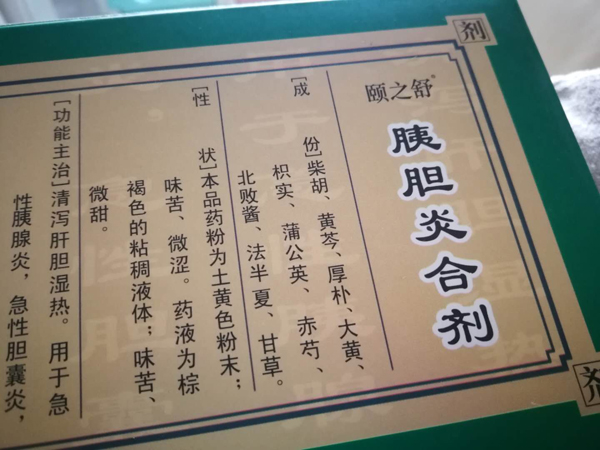 剂
颐之舒®
胰胆炎合剂
[成份]柴胡、黄芩、厚朴、大黄、
枳实、蒲公英、赤芍、
北败酱、法半夏、甘草。
[性状]本品药粉为土黄色粉末；
味苦、微涩。药液为棕
褐色的粘稠液体；味苦、
微甜。
[功能主治]清泻肝胆湿热。用于急
性胰腺炎，急性胆囊炎，